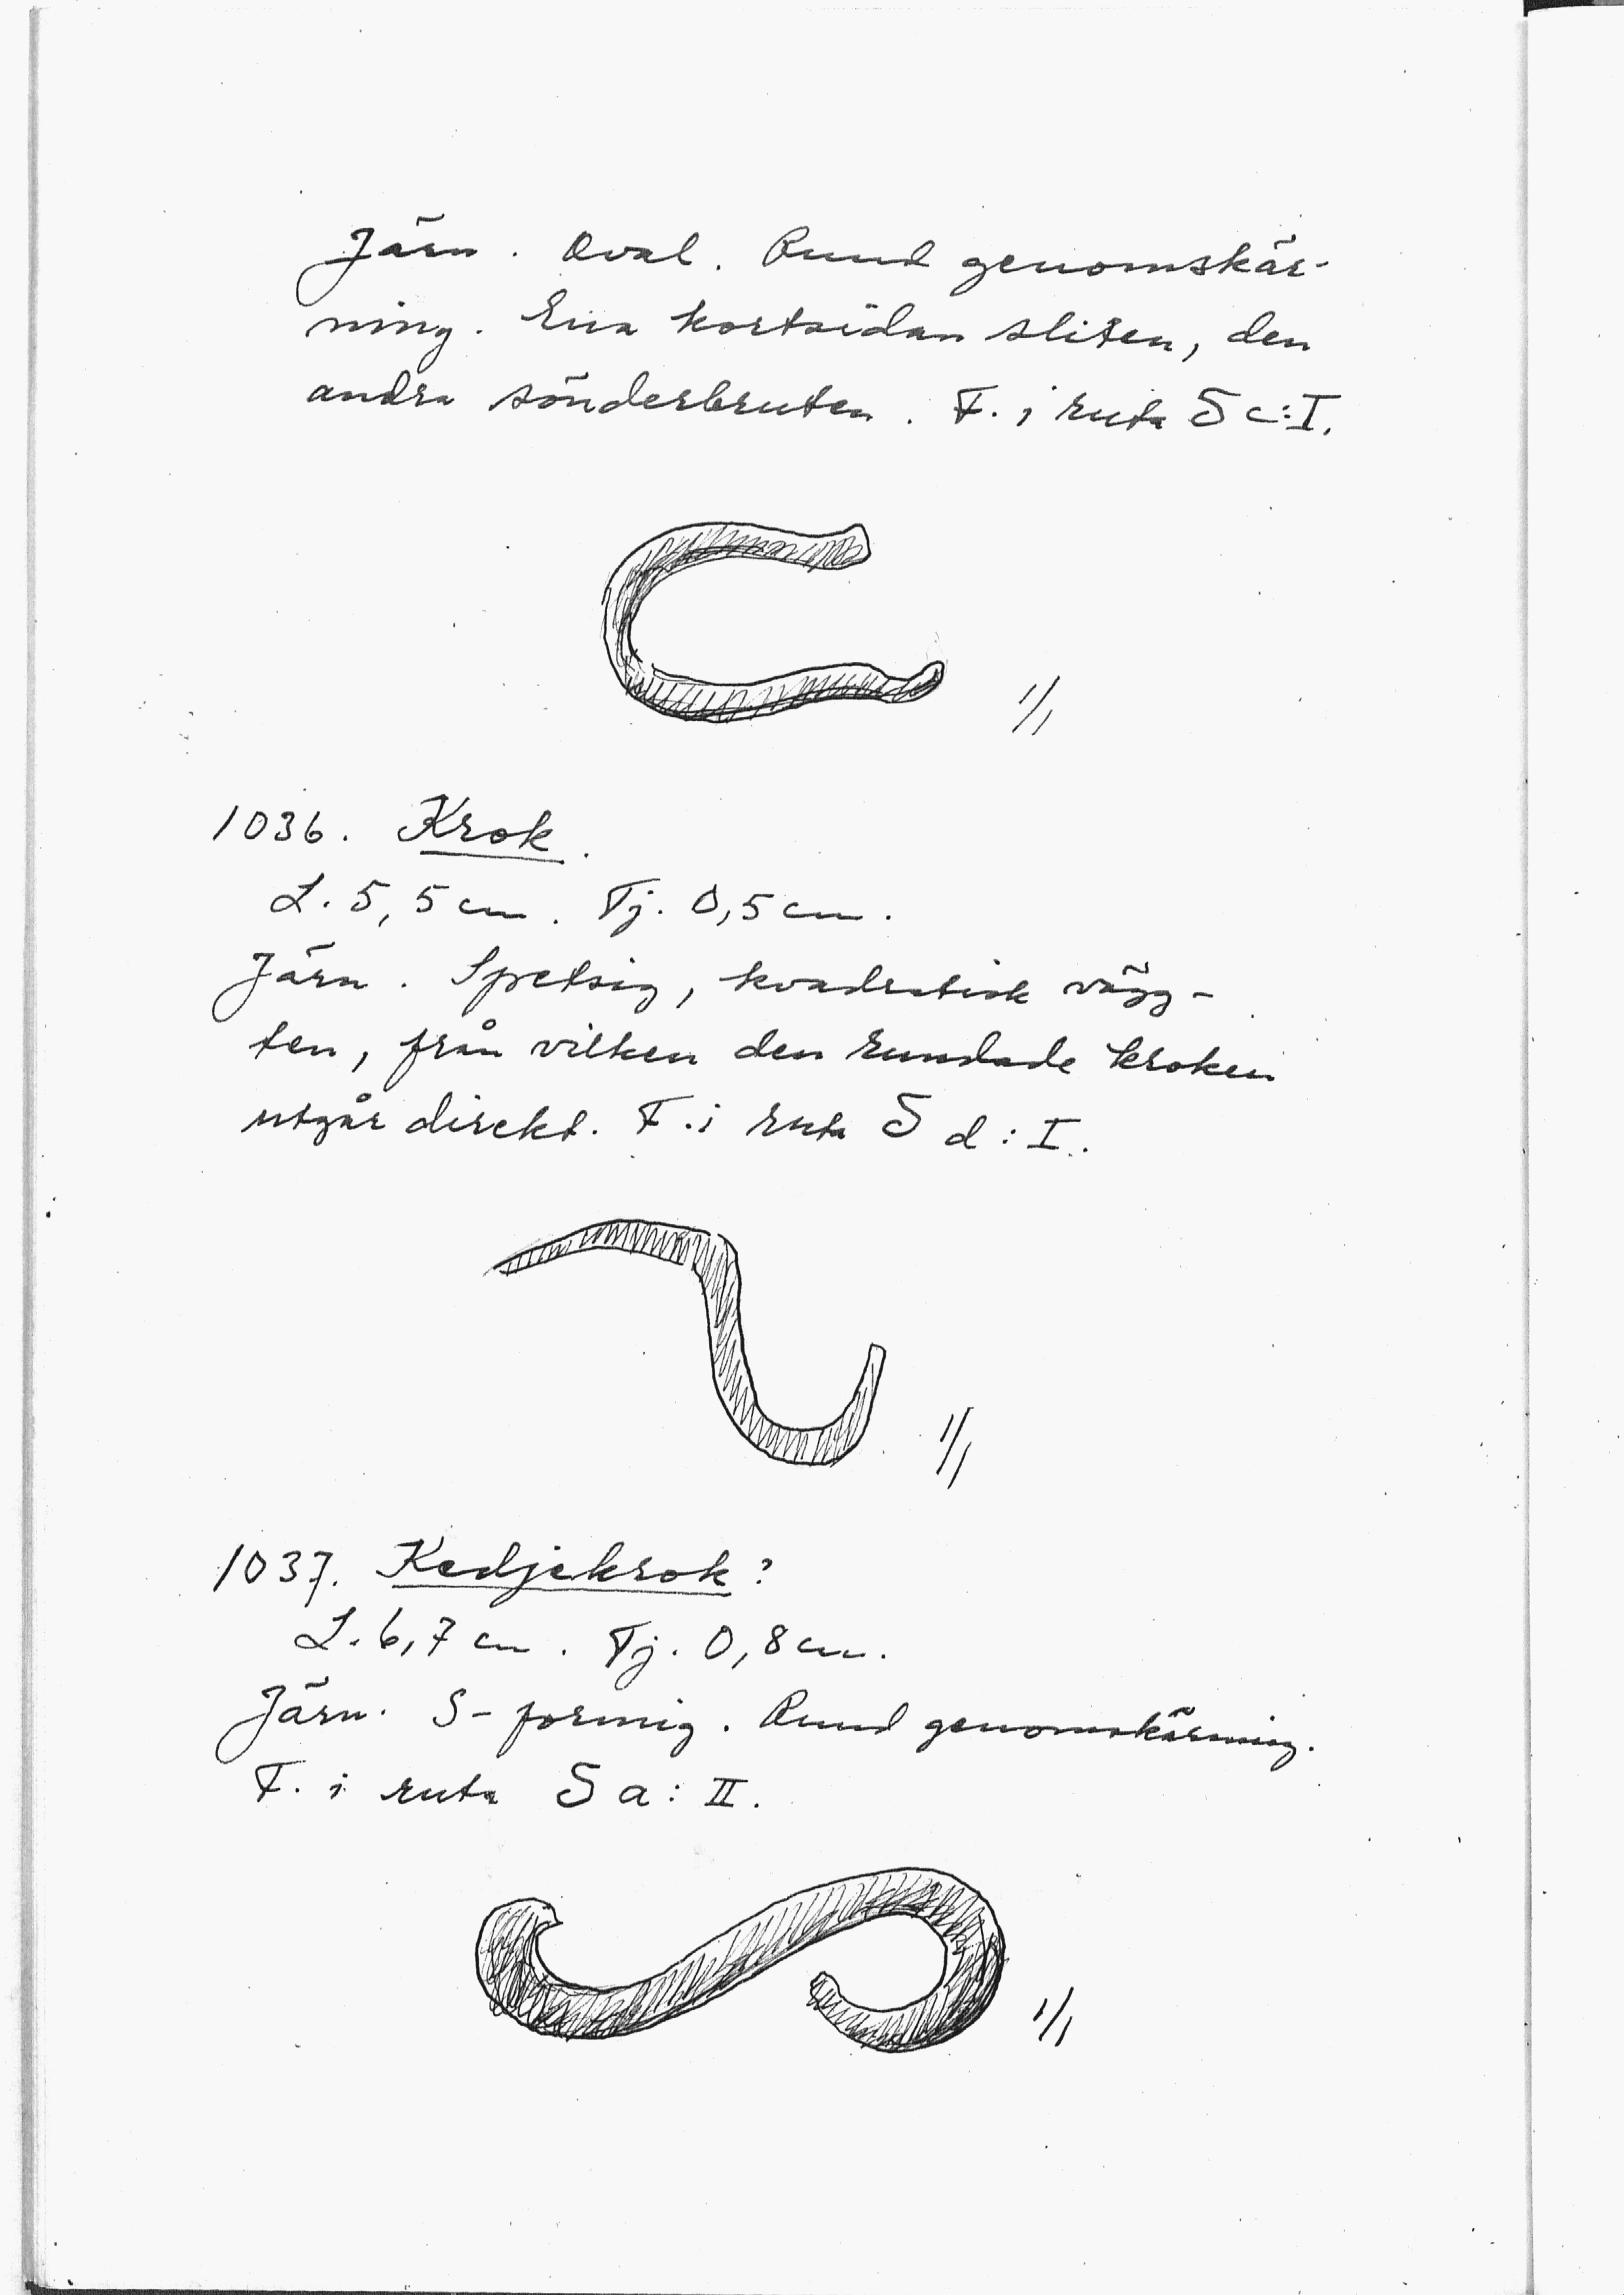 Järn. Oval. Rund genomskär-
ning. Ena kortsidan sliten, den
andra sönderbruten. F. i ruta S c:I.
1/1
1036. Krok.
L. 5,5 cm. Tj. 0,5 cm.
Järn. Spetsig, kvadratisk vägg-
ten, från vilken den rundade kroken
utgår direkt. F. i ruta S d:I.
1/1
1037. Kedjekrok?
L. 6,7 cm. Tj. 0,8 cm.
Järn. S-formig. Rund genomskärning.
F. i ruta S a:II.
1/1